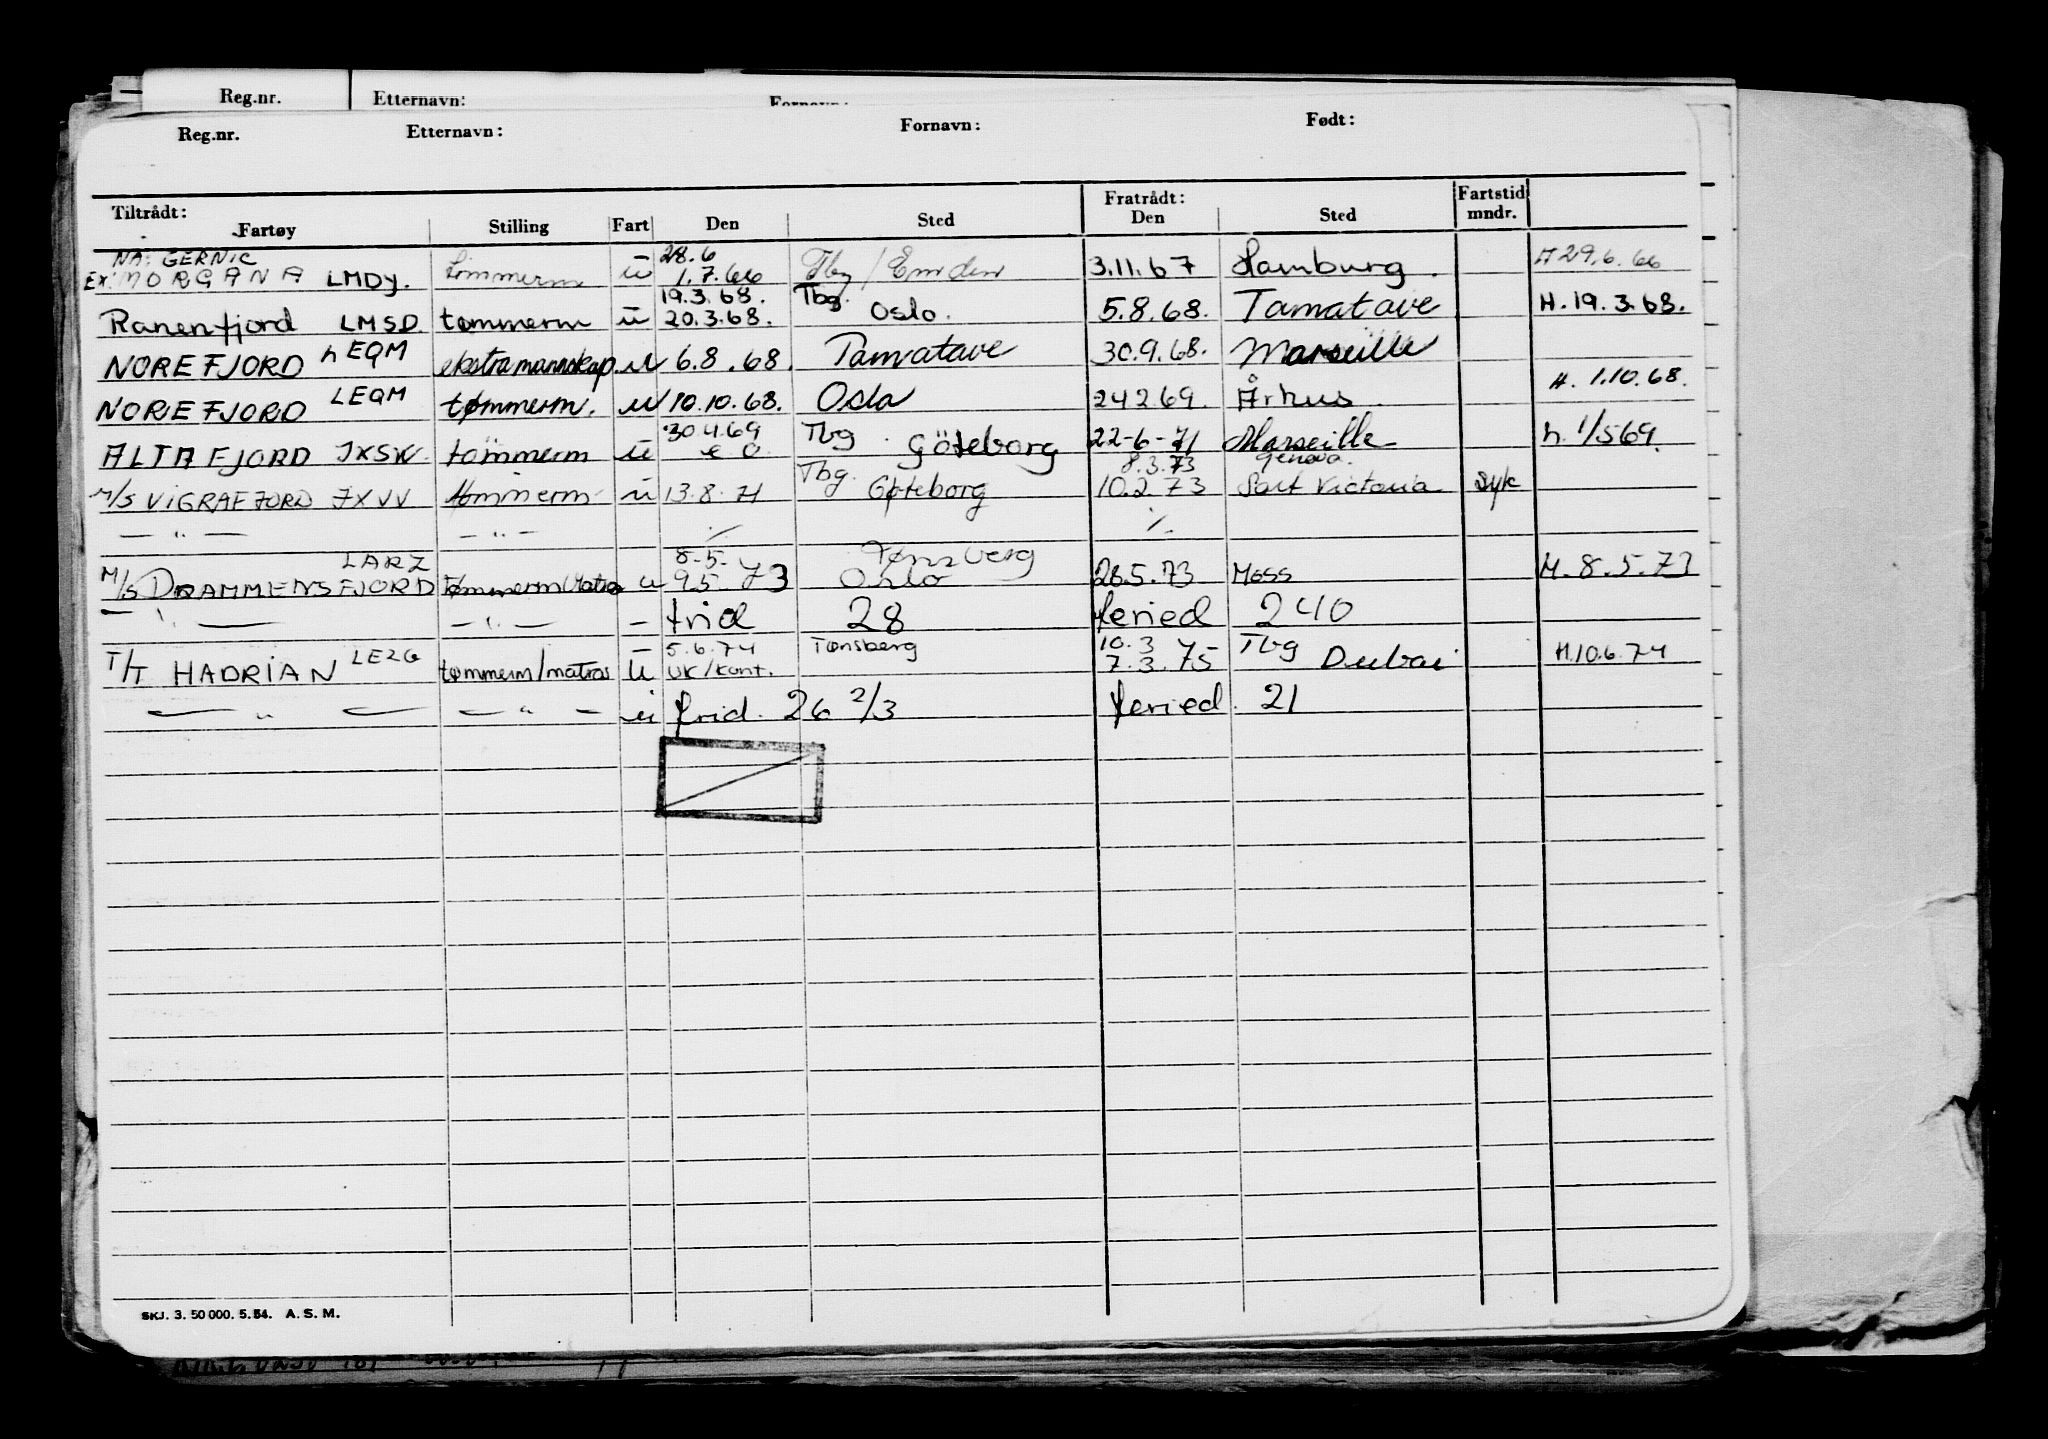 Reg.nr. Etternavn: Fornavn:
Reg.nr. Etternavn: Fornavn: Født:
Tiltrådt: Fratrådt: Fartstid
Fartøy Stilling Fart Den Sted Den Sted mndr.
NÅ: GERNIC 28.6
Ex: MORGANA LMDY. tømmerm ū 1.7.66 Tbg / Emden 3.11.67 Hamburg. H 29.6.66
19.3.68. Tbg.
Ranenfjord LMSD. tømmerm ū 20.3.68. Oslo. 5.8.68. Tamatave H. 19.3.68.
NOREFJORD LEQM ekstramannskap. u 6.8.68. Tamatave 30.9.68. Marseille
NOREFJORD LEQM tømmerm. u 10.10.68. Oslo 24.2.69. Århus H. 1.10.68.
30.4.69 Tbg.
ALTAFJORD JXSW. tömmerm ū Göteborg 22-6-71 Marseille h. 1/5 69.
Tbg. 8.3.73 Genova.
M/S VIGRAFJORD JXVV tømmerm ū 13.8.71 Gøteborg 10.2.73 Port Victoria Syk
— " — — " — ./. ./.
LARZ 8.5. Tønsberg
M/S DRAMMENSFJORD Tømmerm/Matros u 9.5.73 Oslo 28.5.73 Moss H. 8.5.73
— " — — " — — frid 28 feried 240
5.6.74 Tønsberg 10.3 Tbg
T/T HADRIAN LEZG tømmerm/matros ū UK/Kont. 7.3.75 Dubai H.10.6.74
— " — — " — u frid. 26 2/3 feried. 21
SKJ. 3. 50 000. 5.54. A. S. M.